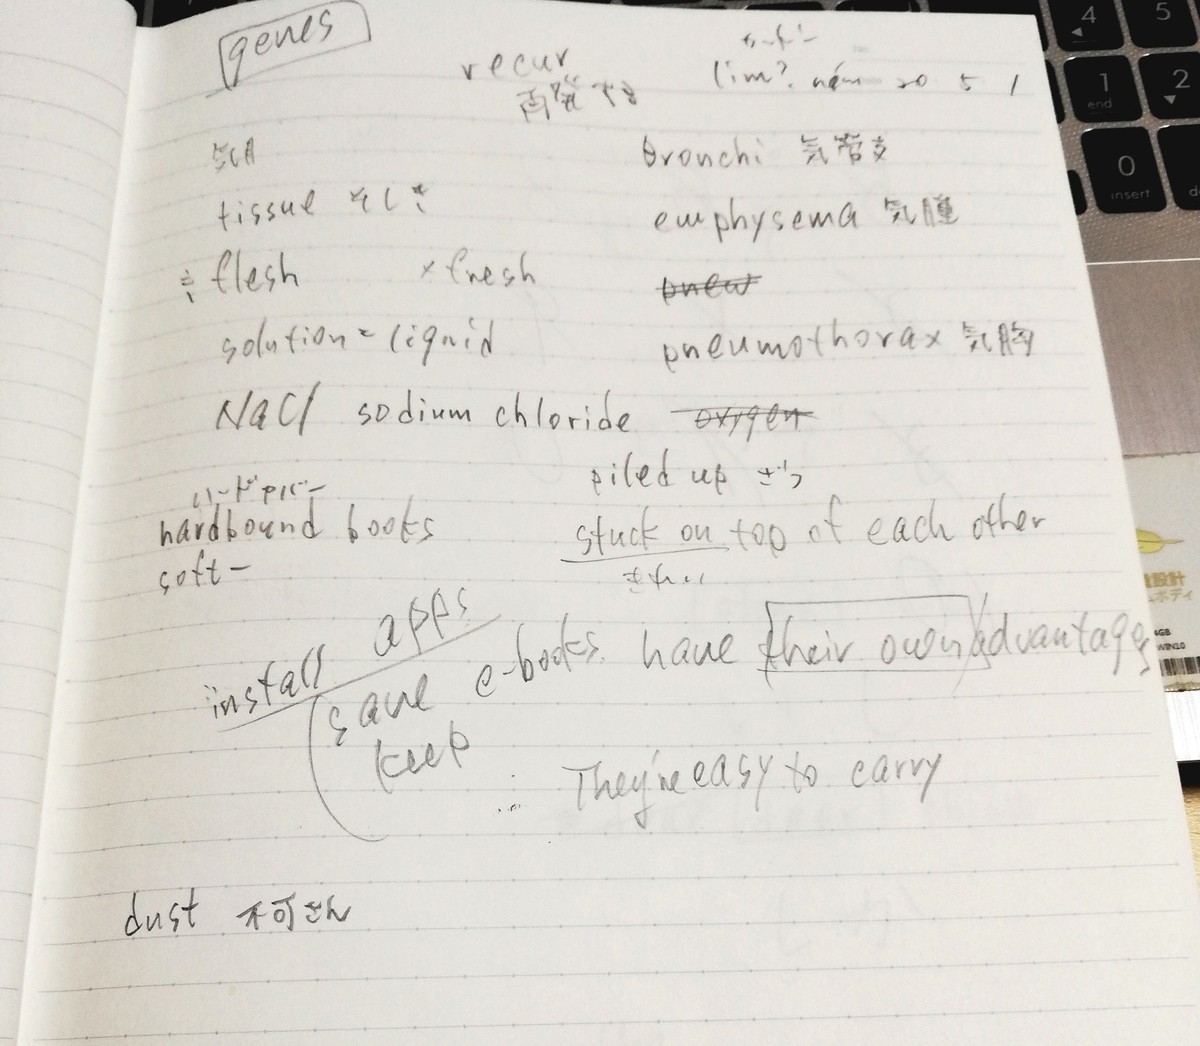 genes
recur
再発する
tissue
flesh × fresh
solution = liquid
NaCl sodium chloride
ハードカバー
hardbound books
soft–
bronchi 気管支
emphysema 気腫
pneumothorax 気胸
oxygen
piled up
stuck on top of each other
install apps
save
keep
e-books have their own advantages
They're easy to carry
dust
4
5
1
end
2
0
insert